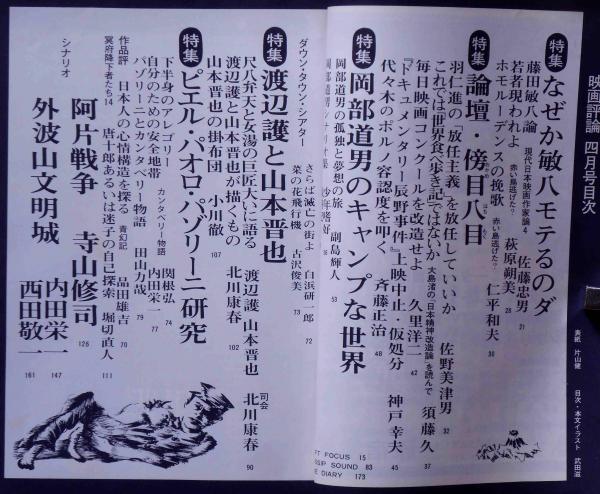 映画評論 四月号目次
表紙 片山健
目次・本文イラスト 武田滋
特集 なぜか敏八モテるのダ
藤田敏八論 現代日本映画作家論4 佐藤忠男 21
若者現われよ 赤い鳥逃げた? 萩原朔美 28
ホモルーデンスの挽歌 赤い鳥逃げた? 仁平和夫 30
特集 論壇・傍目八目
はち もく
羽仁進の「放任主義」を放任していいか 佐野美津男 32
これでは「世界食べ歩き記」ではないか 大島渚の「日本精神改造論」を読んで 須藤久 37
毎日映画コンクールを改造せよ 久里洋二 42
『ドキュメンタリー辰野事件』上映中止・仮処分 神戸幸夫 45
代々木のポルノ容認度を叩く 斉藤正治 48
特集 岡部道男のキャンプな世界
岡部道男の孤独と夢想の旅 副島輝人 53
岡部道男シナリオ集
ダウン・タウン・シアター
さらば滅亡の街よ 白浜研一郎 72
菜の花飛行機 古沢俊美 73
特集 渡辺護と山本晋也
尺八弁天と女湯の巨匠大いに語る 渡辺護 山本晋也 司会 北川康春 90
渡辺護と山本晋也が描くもの 北川康春 102
山本晋也の掛布団 小川徹 107
特集 ピエル・パオロ・パゾリーニ研究
下半身のアレゴリー カンタベリー物語 関根弘 74
自分のための安全地帯 内田栄一 77
パゾリーニとカンタベリー物語 田山力哉 79
作品評 日本人の心情構造を探る 青幻記 品田雄吉 70
冥府降下者たち14 唐十郎あるいは迷子の自己探索 堀切直人 111
阿片戦争 寺山修司 126
シナリオ
外波山文明城 内田栄一 147
西田敬一 161
FT FOCUS 15
SSIP SOUND 83
E DIARY 173